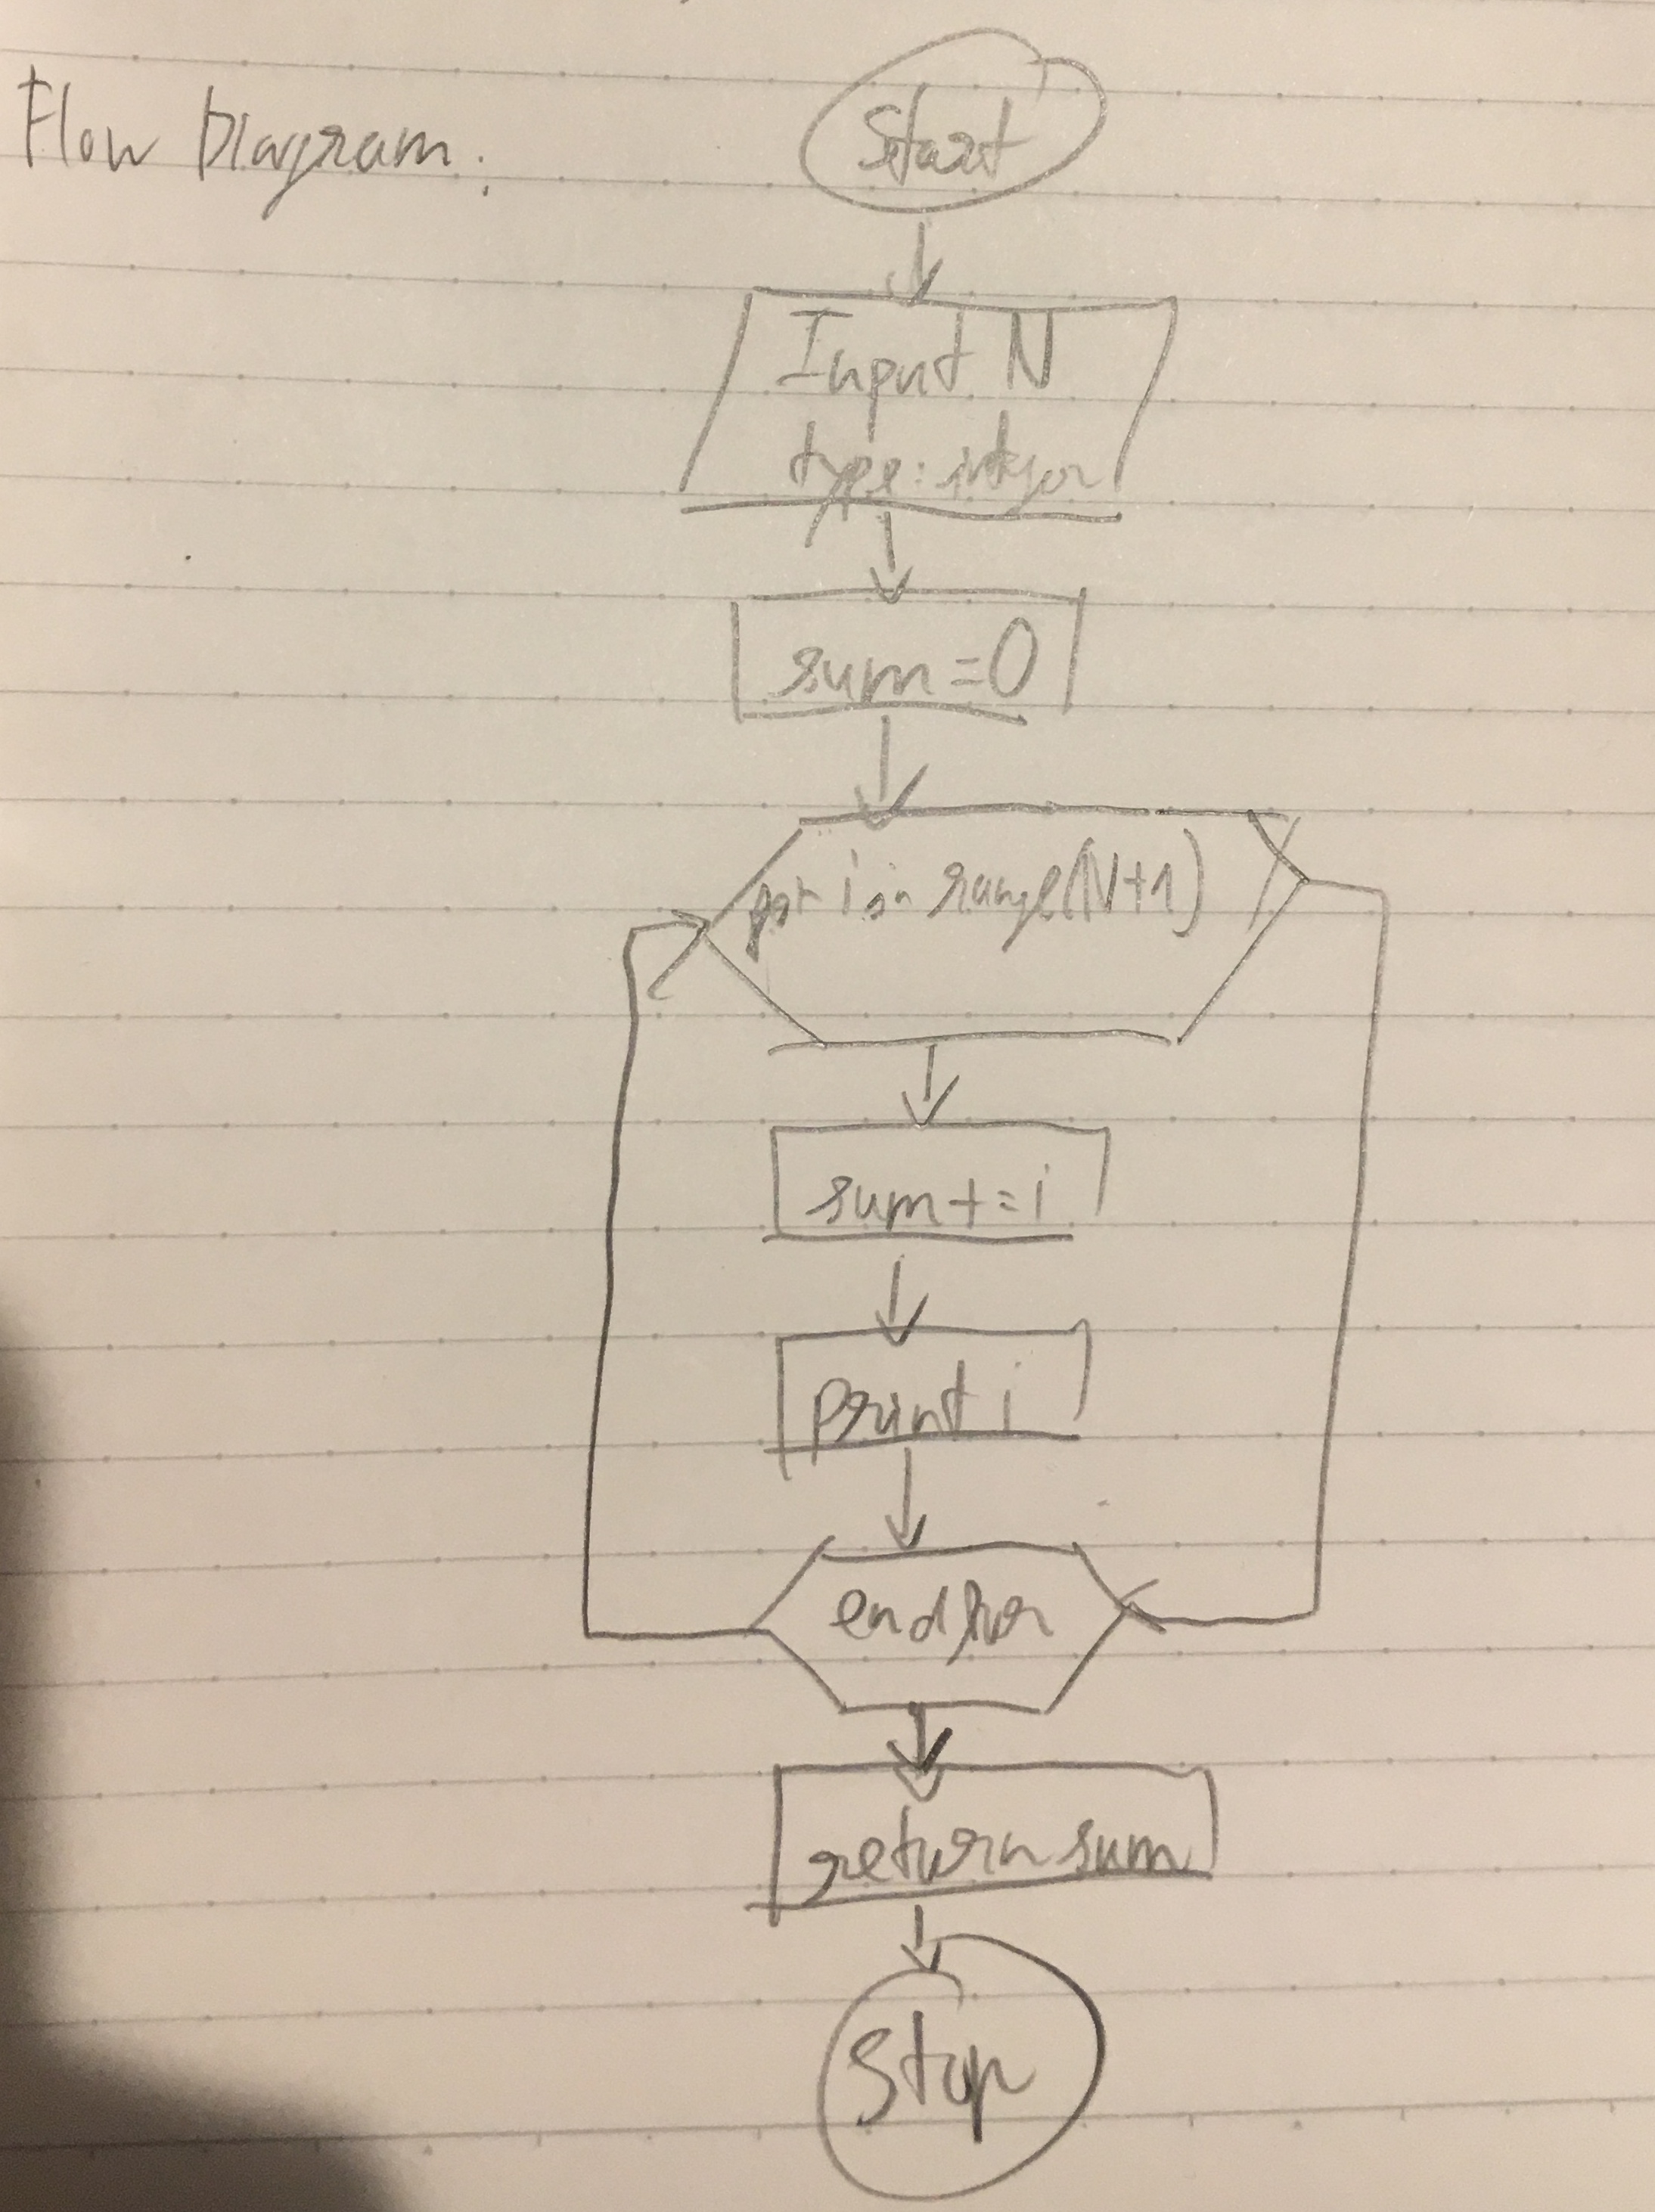 Flow Diagram:
Start
Input N
type: integer
sum=0
for i in range(N+1)
sum+=i
print i
end for
return sum
Stop